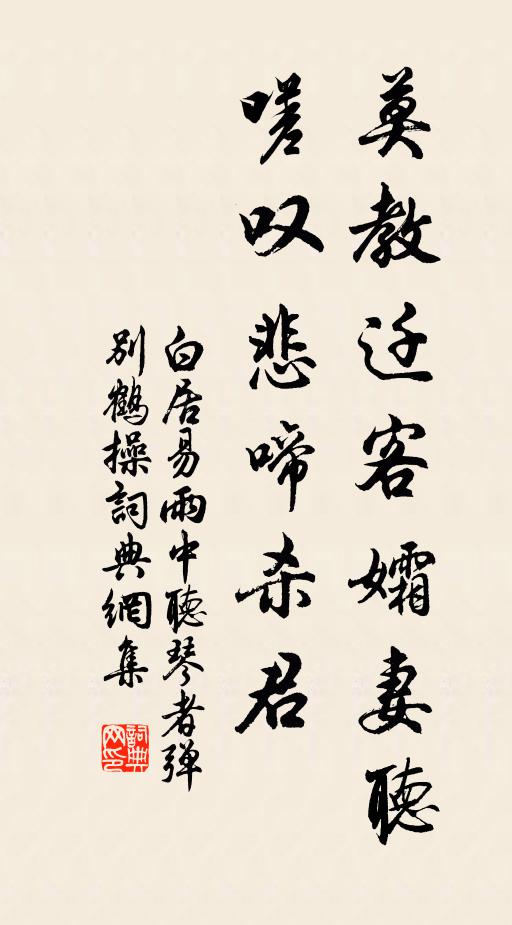 莫教迁客孀妻聽
嗟叹悲啼杀君
白居易雨中聽琴者弹
别鶴操詞典網集
詞典网印